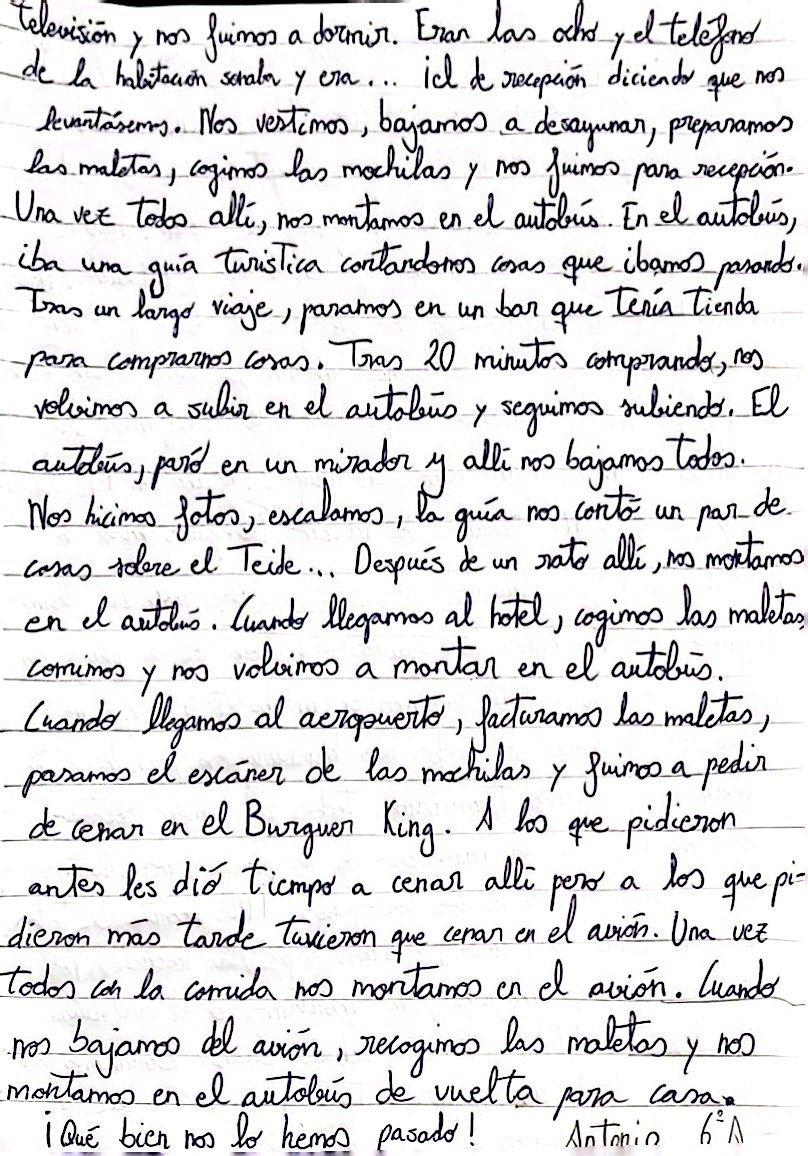 televisión y nos fuimos a dormir. Eran las ocho y el teléfono
de la habitación sonaba y era... ¡el de recepción diciendo que nos
levantásemos. Nos vestimos, bajamos a desayunar, preparamos
las maletas, cogimos las mochilas y nos fuimos para recepción.
Una vez todos allí, nos montamos en el autobús. En el autobús,
iba una guía turística contandonos cosas que ibamos pasando.
Tras un largo viaje, paramos en un bar que tenía tienda
para comprarnos cosas. Tras 20 minutos comprando, nos
volvimos a subir en el autobús y seguimos subiendo. El
autobús, paró en un mirador y allí nos bajamos todos.
Nos hicimos fotos, escalamos, la guía nos contó un par de
cosas sobre el Teide... Después de un rato allí, nos montamos
en el autobús. Cuando llegamos al hotel, cogimos las maletas,
comimos y nos volvimos a montar en el autobús.
Cuando llegamos al aeropuerto, facturamos las maletas,
pasamos el escáner de las mochilas y fuimos a pedir
de cenar en el Burguer King. A los que pidieron
antes les dió tiempo a cenar allí pero a los que pi-
dieron más tarde tuvieron que cenar en el avión. Una vez
todos con la comida nos montamos en el avión. Cuando
nos bajamos del avión, recogimos las maletas y nos
montamos en el autobús de vuelta para casa.
¡Qué bien nos lo hemos pasado! Antonio 6ºA